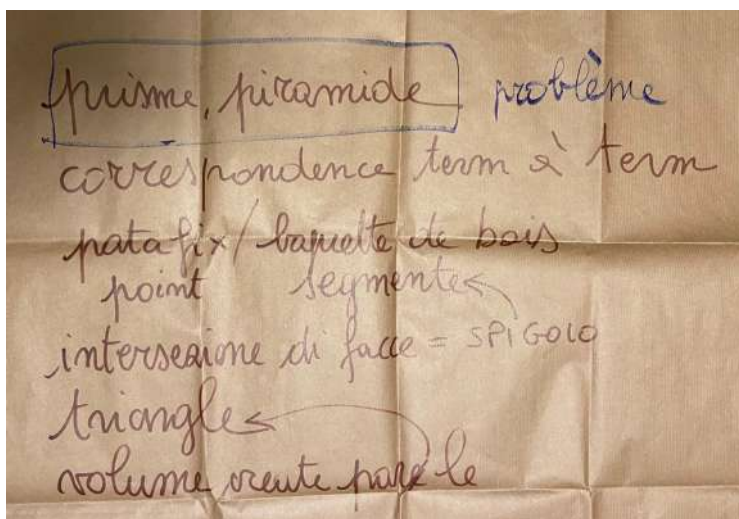 prisme, piramide problème
correspondence term à term
patafix/baguette de bois
point segmente
intersezione di facce = SPIGOLO
triangle
volume par le